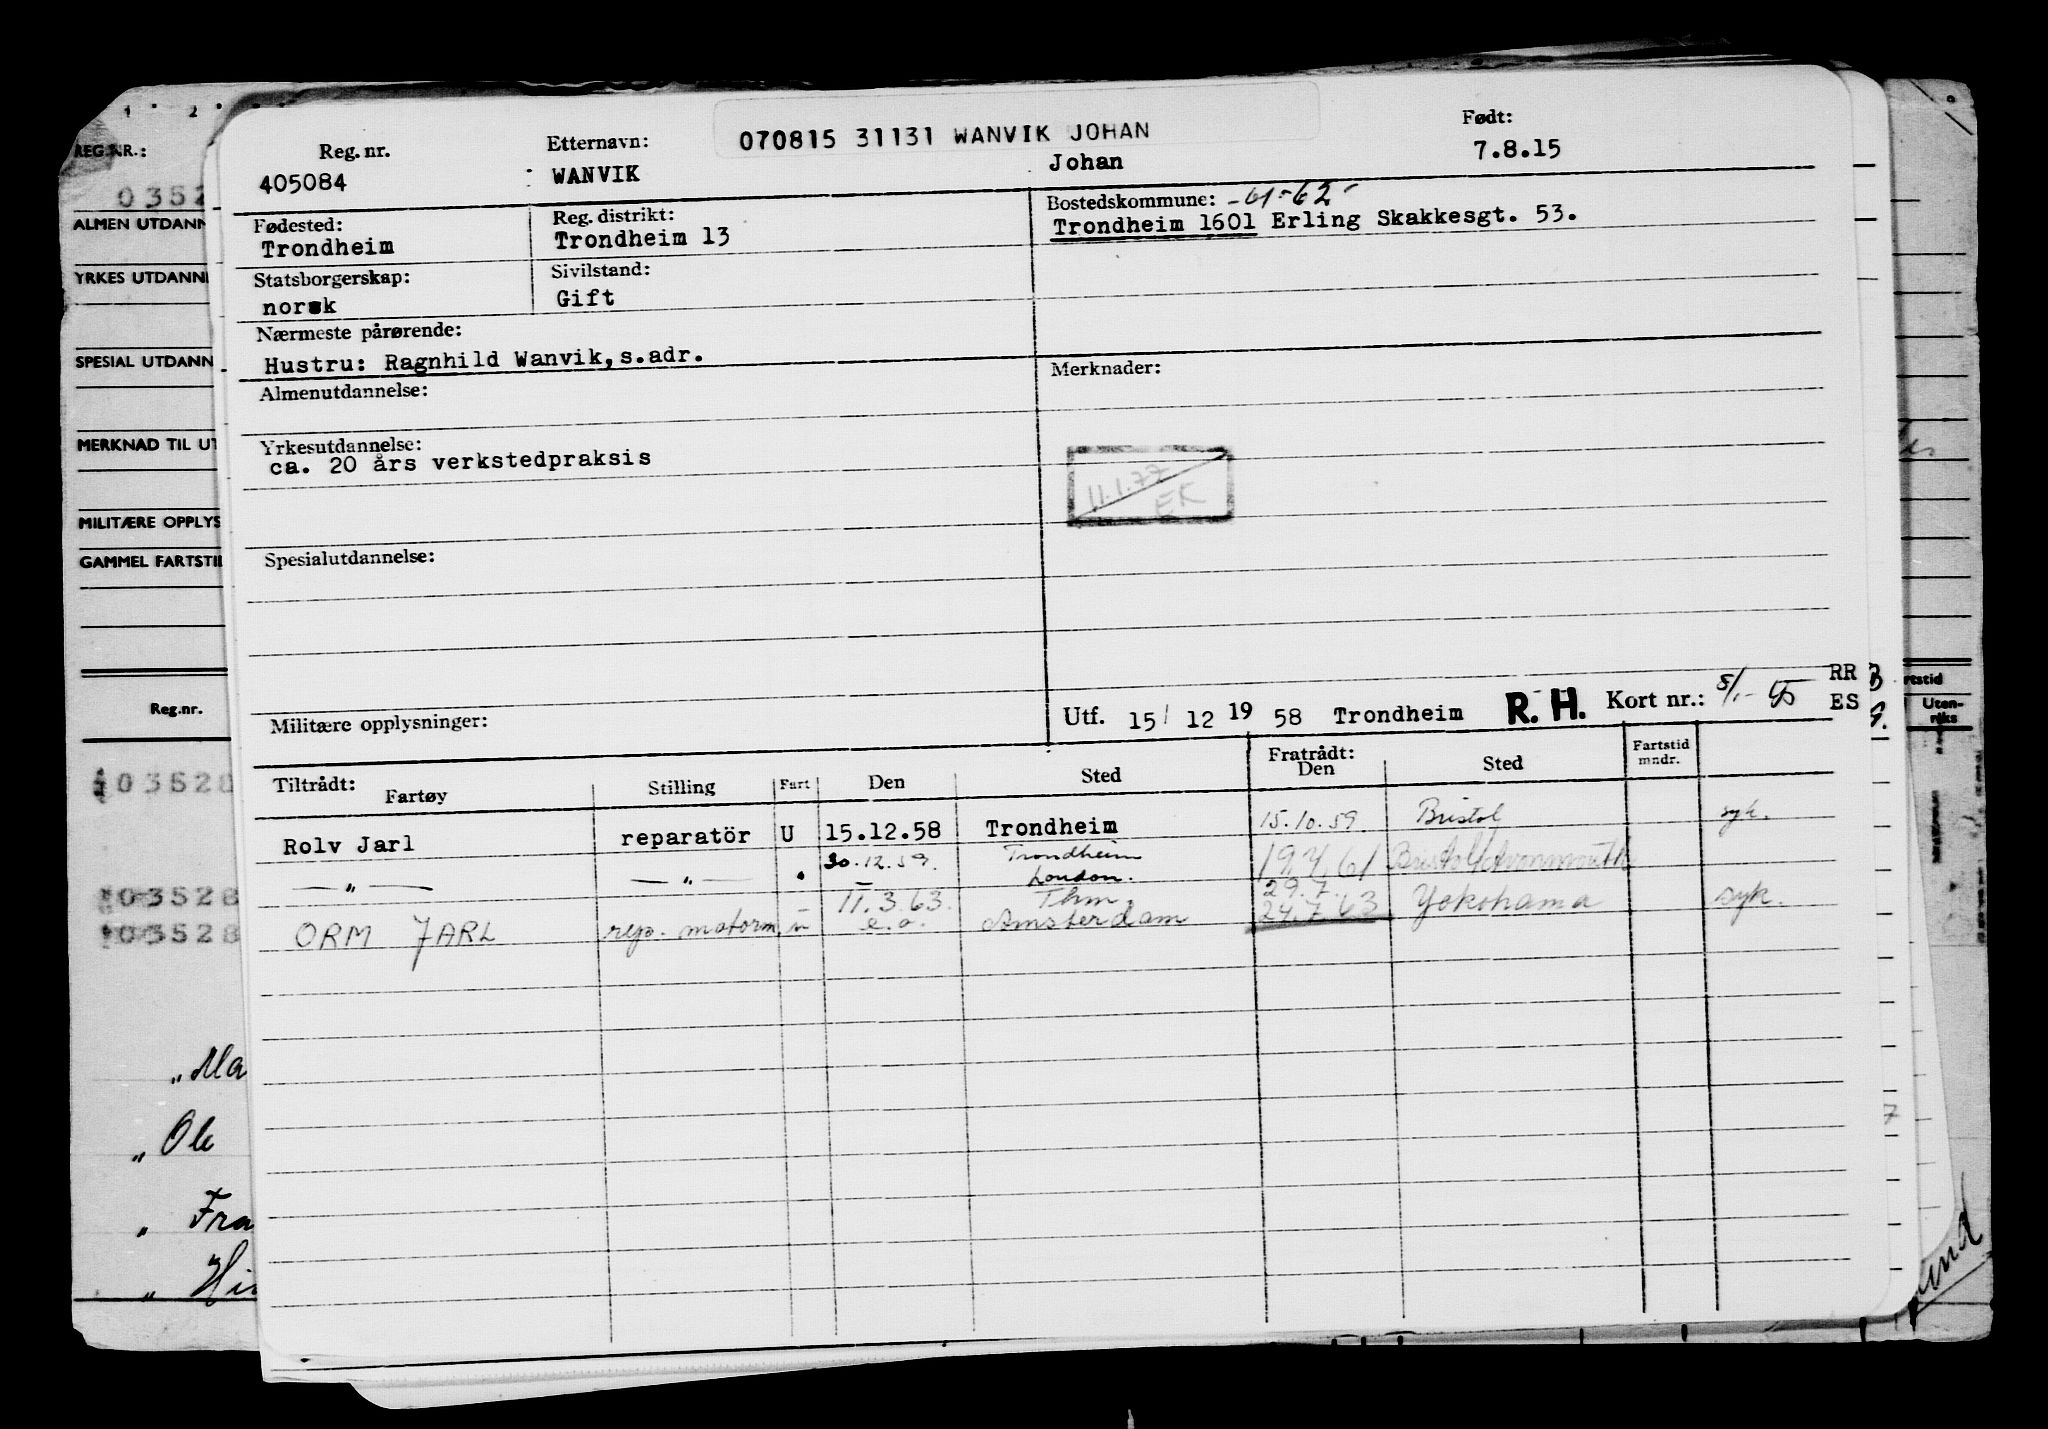 070815 31131 WANVIK JOHAN
Reg. nr. Etternavn: Født:
405084 WANVIK Johan 7.8.15
Fødested: Reg. distrikt: Bostedskommune: -61-62-
Trondheim Trondheim 13 Trondheim 1601 Erling Skakkesgt. 53.
Statsborgerskap: Sivilstand:
norsk Gift
Nærmeste pårørende:
Hustru: Ragnhild Wanvik, s.adr.
Almenutdannelse: Merknader:
Yrkesutdannelse:
ca. 20 års verkstedpraksis
11.1.77
EK
Spesialutdannelse:
Militære opplysninger: Utf. 15/ 12 19 58 Trondheim R. H. Kort nr.: RR
ES
Tiltrådt: Fartøy Stilling Fart Den Sted Fratrådt: Den Sted Fartstid mndr.
Rolv Jarl reparatör U 15.12.58 Trondheim 15.10.59 Bristol syk.
— " — — " — " 30.12.59. Trondheim London. 19.7.61 Bristol/Avonmouth
ORM JARL rep. motorm. u 11.3.63. e.o. Thm. Amsterdam 29.7. 24.7.63 Yokohama syk.
REG.NR.:
0352
ALMEN UTDANN
YRKES UTDANN
SPESIAL UTDANN
MERKNAD TIL UT
MILITÆRE OPPLYS
GAMMEL FARTSTI
Reg.nr.
03528
03528
03528
„ Ma
„ Ole
„ Fra
„ Hi
rtstid
Uten-
riks
und